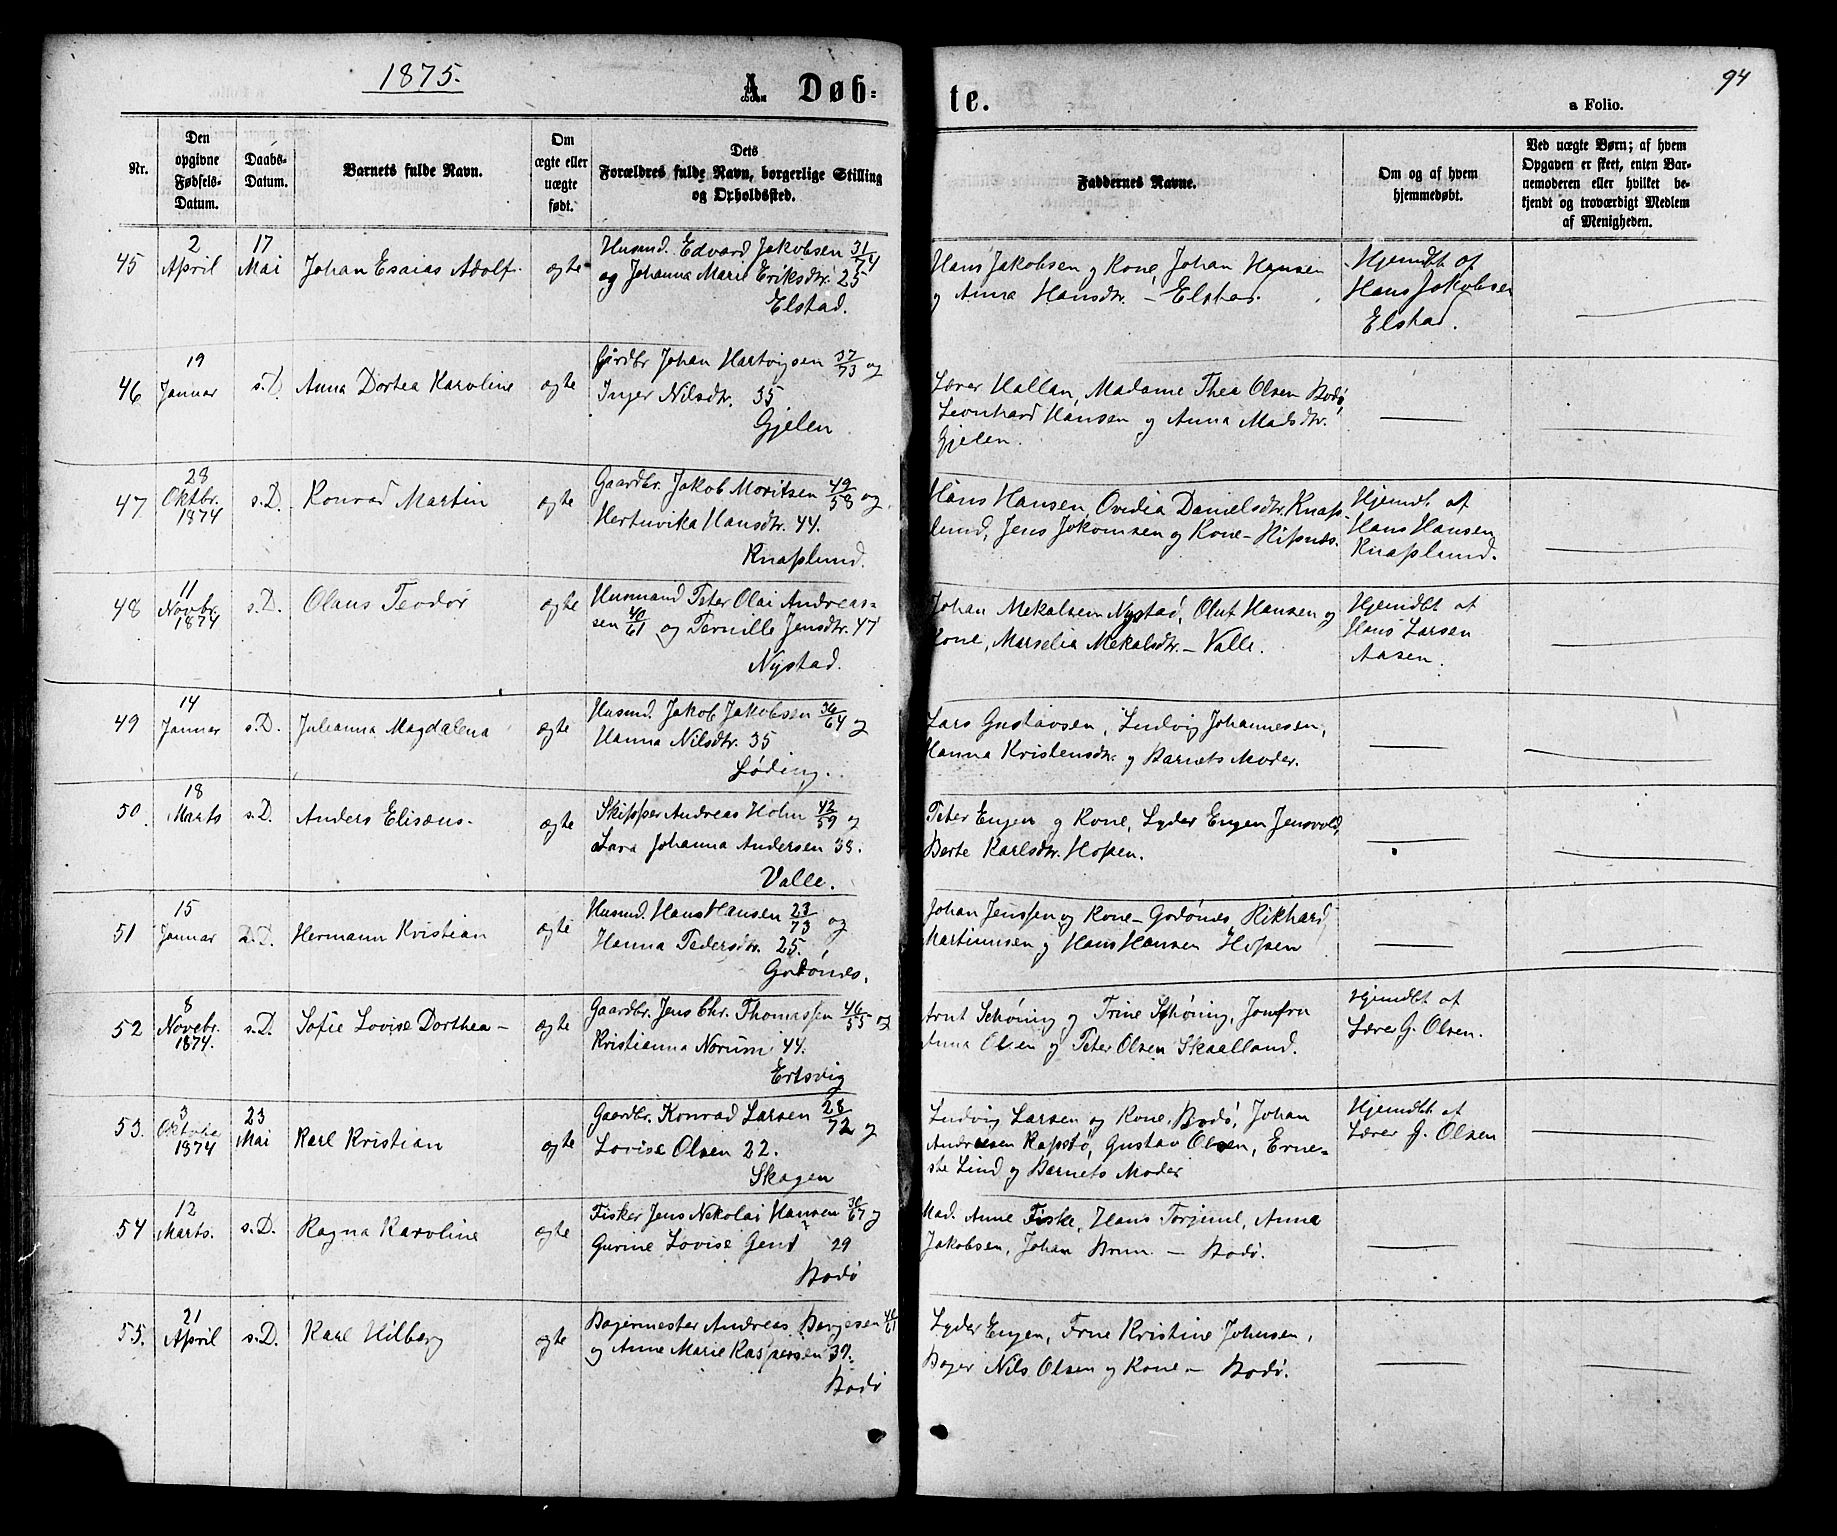 1875.
A. Døb=
te.
94
a Folio.
Nr.
Den opgivne Fødsels-Datum.
Daabs-Datum.
Barnets fulde Navn.
Om ægte eller uægte født.
Dets Forældres fulde Navn, borgerlige Stilling og Opholdssted.
Faddernes Navne.
Om og af hvem hjemmedøbt.
Ved uægte Børn; af hvem Opgaven er skeet, enten Barnemoderen eller hvilket bekjendt og troværdigt Medlem af Menigheden.
45 2 April 17 Mai Johan Esaias Adolf. ægte
Husmd. Edvard Jakobsen 31/74
og Johanna Marie Eriksdtr. 25
Elstad.
Hans Jakobsen og Kone, Johan Hansen
og Anna Hansdtr. – Elstad.
Hjemdbt af
Hans Jakobsen
Elstad.
46 19 Januar s.D. Anna Dortea Karoline ægte
Grdbr Johan Hartvigsen 37/73 og
Inger Nilsdtr. 35
Gjelen
Lærer Hallan, Madame Thea Olsen Bodø,
Leonhard Hansen og Anna Madsdtr.
Gjelen.
47 28 Oktbr. 1874 s.D. Konrad Martin ægte
Gaardbr. Jakob Moritsen 49/58 og
Hertuvika Hansdtr. 44.
Knaplund.
Hans Hansen, Ovidia Danielsdtr. Knap-
lund, Jens Jokumsen og Kone –
Hjemdt af
Hans Hansen
Knaplund.
48 11 Novbr. 1874 s.D. Olaus Teodor ægte
Husmand Peter Olai Andreas-
sen 40/61 og Pernille Jensdtr. 47
Nystad.
Johan Mekalsen Nystad, Oluf Hansen og
Kone, Marselia Mekalsdtr. – Valle.
Hjemdbt af
Hans Larsen
Aasen.
49 14 Januar s.D. Julianna Magdalena ægte
Husmd. Jakob Jakobsen 36/64 og
Hanna Nilsdtr. 35
Løding.
Lars Gustavsen, Ludvig Johannesen,
Hanna Kristensdtr. og Barnets Moder.
50 18 Marts s.D. Anders Elisæus. ægte
Skipper Andreas Holm 42/59 og
Lava Johanna Andersen 38.
Valle.
Peter Engen og Kone, Lyder Engen Jensvold,
Berte Karlsdtr. Hopen.
51 15 Januar s.D. Hermann Kristian ægte
Husmd. Hans Hansen 23/73 og
Hanna Pedersdtr. 25.
Godønes.
Johan Jenssen og Kone – Godønes, Rikhard
Martinusen og Hans Hansen Hopen
52 8 Novebr. 1874. s.D. Sofie Lovise Dorthea – ægte
Gaardbr. Jens Chr. Thomassen 46/55 og
Kristianna Norum 44.
Ertsvig
Arnt Schöning og Trine Schöning, Jomfru
Anna Olsen og Peter Olsen Skaalland.
Hjemdbt af
Lærer G. Olsen.
53. 3 Oktober 1874 23 Mai Karl Kristian ægte
Gaardbr. Konrad Larsen 28/72 og
Lovise Olsen 22.
Skagen
Ludvig Larsen og Kone, Bodø, Johan
Andreesen Kapstø, Gustav Olsen, Erne-
ste Lind og Barnets Moder
Hjemdbt af
Lærer G. Olsen
54 12 Marts. s.D. Ragna Karoline ægte
Fisker Jens Nekolai Hansen 36/67 og
Gurine Lovise 29
Bodø
Mad. Anne Fiske, Hans Torjeml, Anna
Jakobsen, Johan Brun – Bodø.
55. 21 April s.D. Karl Hilberg ægte
Bagermester Andreas Borgesen 46/61
og Anne Marie Kaspersen 39.
Bodø
Lyder Engen, Frue Kristine Johnsen,
Bager Nils Olsen og Kone – Bodø.